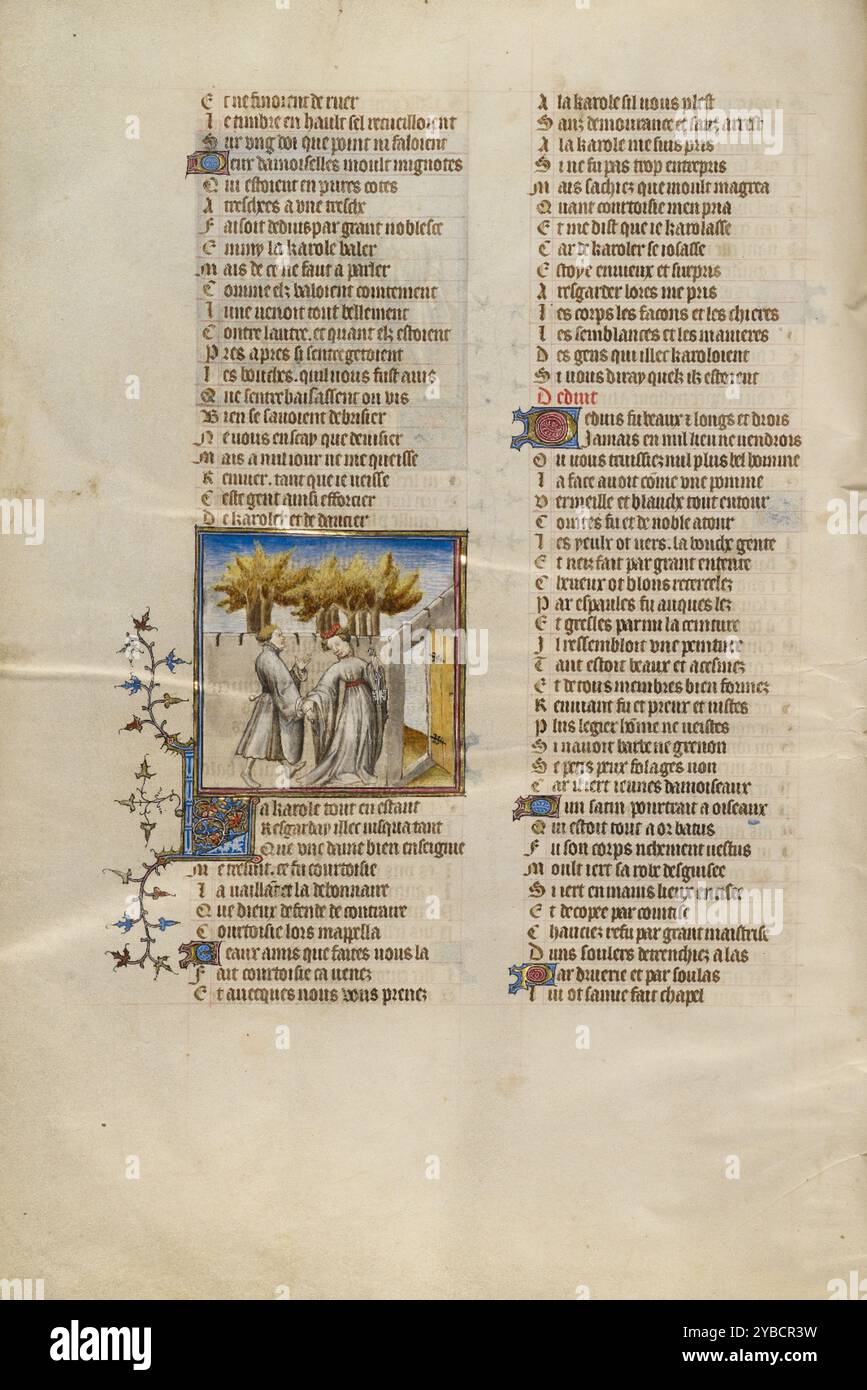 E t ne finorent de ruer
L e timbre en hault sel recueilloient
S ur ung doi que point ni faloient
D eux damoiselles moult mignotes
Q ui estoient en pures cotes
A treschees a une tresche
F aisoit deduis par grant noblesce
E nmy la karole baler
M ais de ce ne faut a parler
C omme elz baloient cointement
L une venoit tout bellement
C ontre lautre. et quant elz estoient
P res apres si sentregetoient
L es bouches. quil vous fust avis
Q ue sentrebaisassent ou vis
B ien se savoient debrisier
N e vous en scay que devisier
M ais a nul iour ne me queisse
R emuer. tant que ie veisse
C este gent ainsi efforcier
D e karoler et de dancier
L a karole tout en estant
Resgarday illec iusqua tant
Que une dame bien enseignie
M e tresvit. ce fu courtoisie
L a vaillant et la debonnaire
Q ue dieux defende de contraire
C ourtoisie lors mappella
B eaux amis que faites vous la
F ait courtoisie ca venez
E t avecques nous vous prenez
A la karole sil vous plest
S anz demourance et sanz arrest
A la karole me suis pris
S i ne fu pas trop entrepris
M ais sachiez que moult magrea
Q uant courtoisie men pria
E t me dist que ie karolasse
C ar de karoler se iosasse
E stoye envieux et surpris
A resgarder lores me pris
L es corps les facons et les chieres
L es semblances et les manieres
D es gens qui illec karoloient
S i vous diray quelz ilz estoient
D eduit
D eduis fu beaux z longs et drois
Jamais en nul lieu ne vendrois
O u vous truissiez nul plus bel homme
L a face avoit come une pomme
V ermeille et blanche tout entour
C ointes fu et de noble atour
L es yeulx ot vers. la bouche gente
E t nez fait par grant entente
C heveux ot blons recercelez
P ar espaules fu auques lez
E t gresles parmi la ceinture
I l ressembloit une peinture
T ant estoit beaux et acesmez
E t de tous membres bien formez
R emuant fu et preux et vistes
P lus legier home ne veistes
S i navoit barbe ne grenon
S e petis peux folages non
C ar il iert iennes damoiseaux
D un satin pourtrait a oiseaux
Q ui estoit tout a or batus
F u son corps richement vestus
M oult iert sa robe desguisee
S i iert en maints lieux encisee
E t decopee par cointise
C hauciez refu par grant maistrise
D uns soulers detrenchiez a las
P ar druerie et par soulas
L ui ot samie fait chapel
alamy
Image ID: 2YBCR3W
www.alamy.com